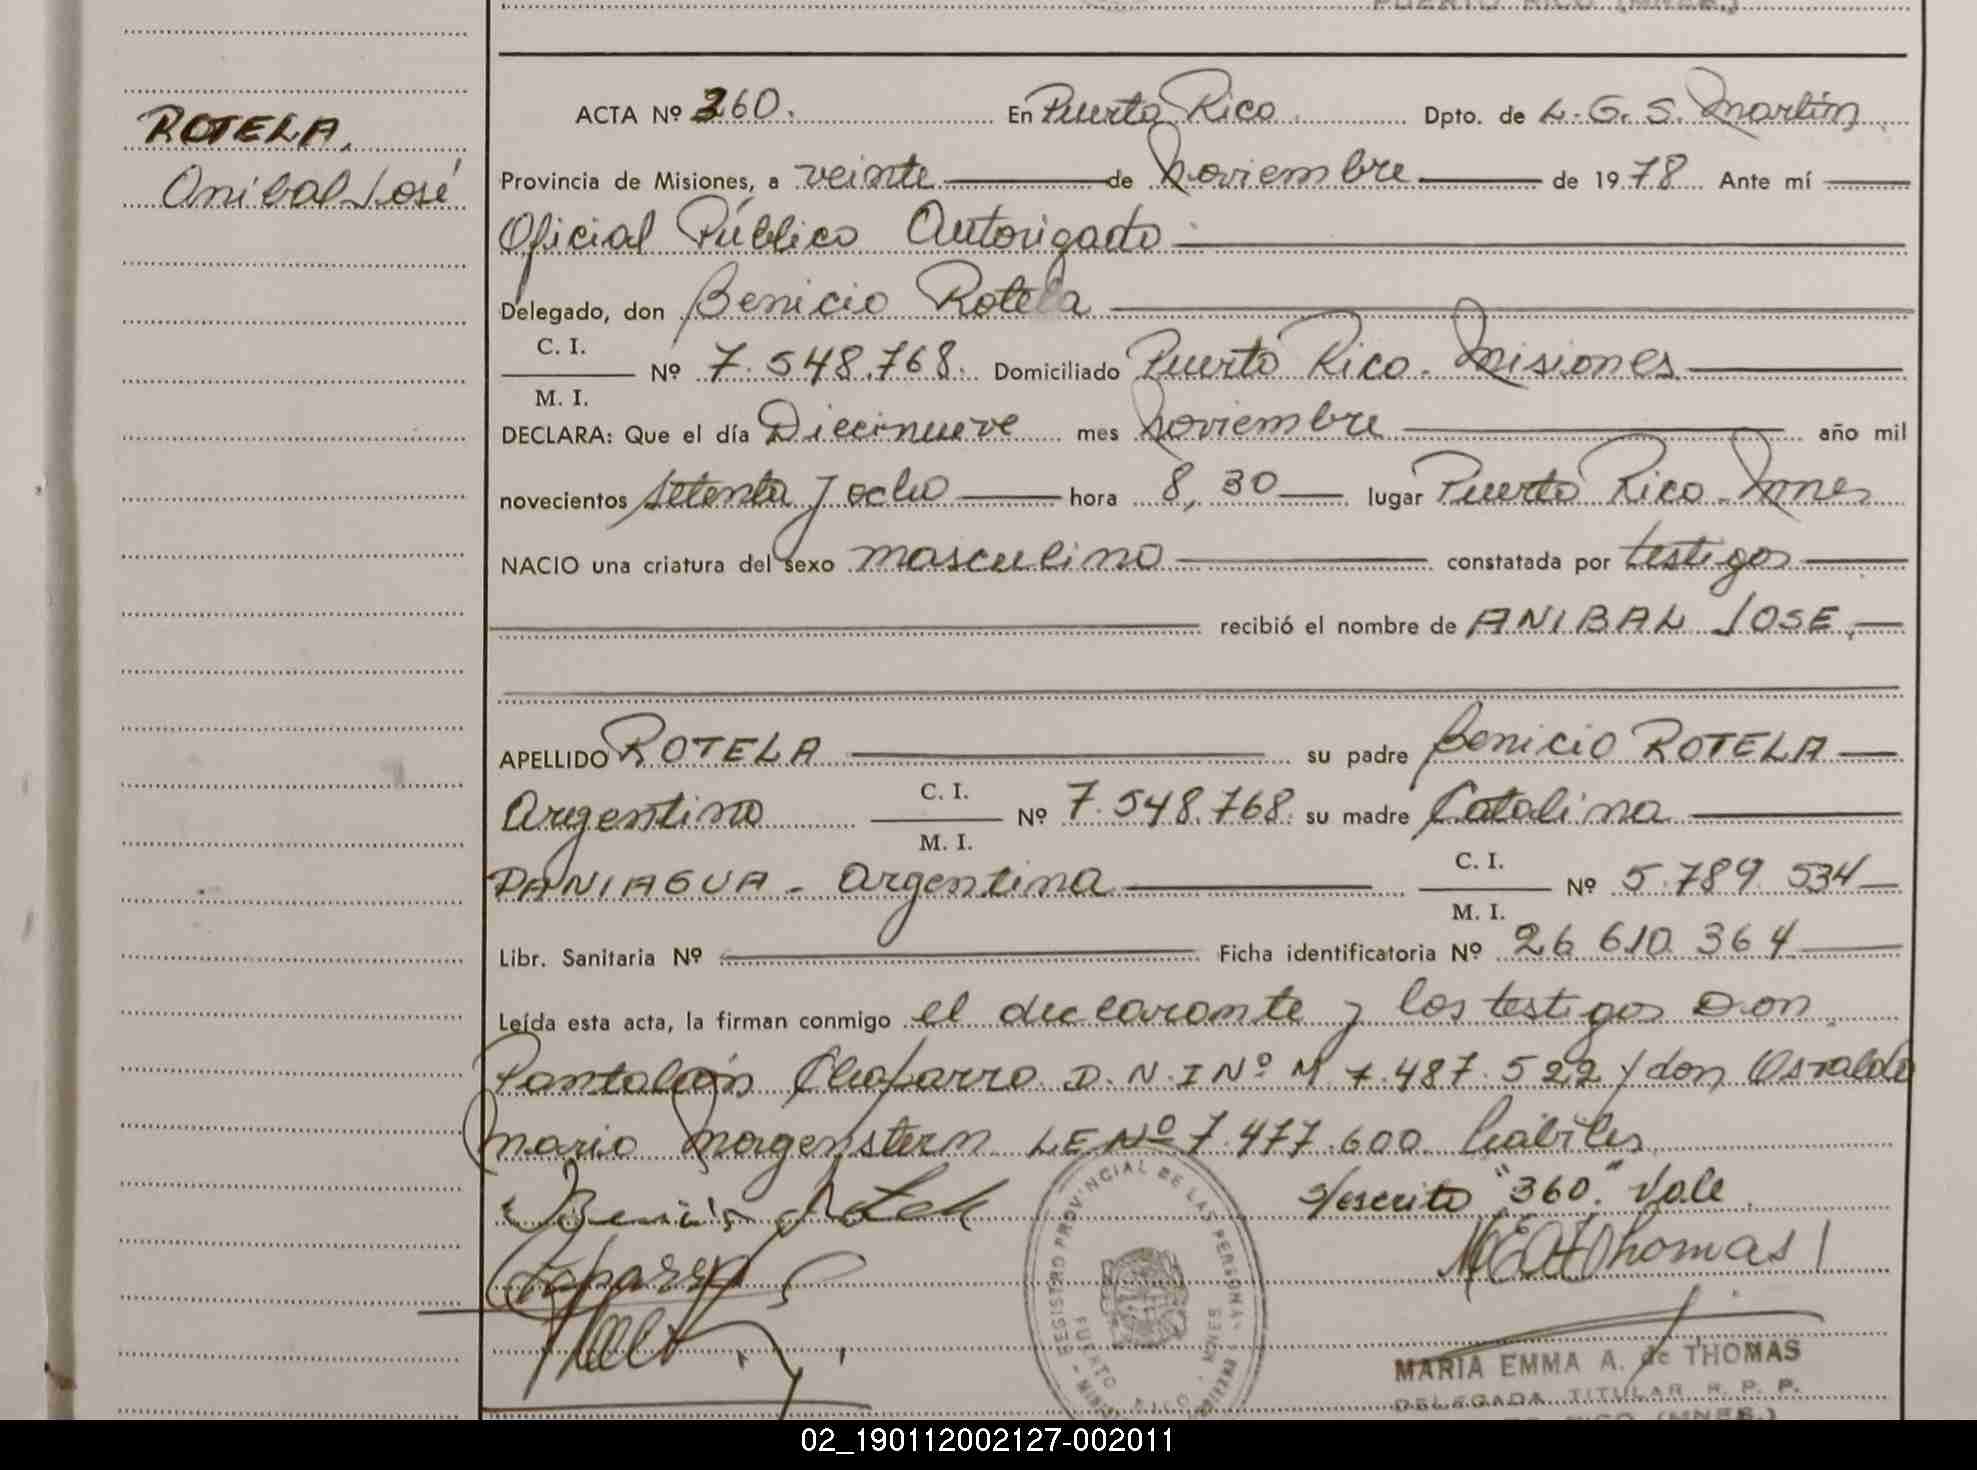 PUERTO RICO (MNES.)
ROTELA,
Anibal José
ACTA Nº 360. En Puerto Rico. Dpto. de L. G. S. Martín
Provincia de Misiones, a veinte de Noviembre de 1978 Ante mí
Oficial Público Autorizado
Delegado, don Benicio Rotela
C. I.
Nº 7.548.768. Domiciliado Puerto Rico. Misiones
M. I.
DECLARA: Que el día Diecinueve mes Noviembre año mil
novecientos setenta y ocho hora 8,30 lugar Puerto Rico - Mnes
NACIO una criatura del sexo masculino constatada por testigos
recibió el nombre de ANIBAL JOSE,
APELLIDO ROTELA su padre Benicio ROTELA
Argentino C. I. Nº 7.548.768. su madre Catalina
M. I.
PANIAGUA - Argentina C. I. Nº 5.789.534
M. I.
Libr. Sanitaria Nº Ficha identificatoria Nº 26.610.364
Leída esta acta, la firman conmigo el declarante y los testigos Don
Pantaleón Chaparro D. N. I Nº M 7.487.522 y don Osvaldo
Mario Morgenstern LE Nº 7.477.600 hábiles
s/escrito "360." Vale.
Benicio Rotela
MEAdThomas
REGISTRO PROVINCIAL DE LAS PERSONAS
PUERTO RICO, MNES
MARIA EMMA A. de THOMAS
DELEGADA TITULAR R. P. P.
PUERTO RICO (MNES.)
02_190112002127-002011